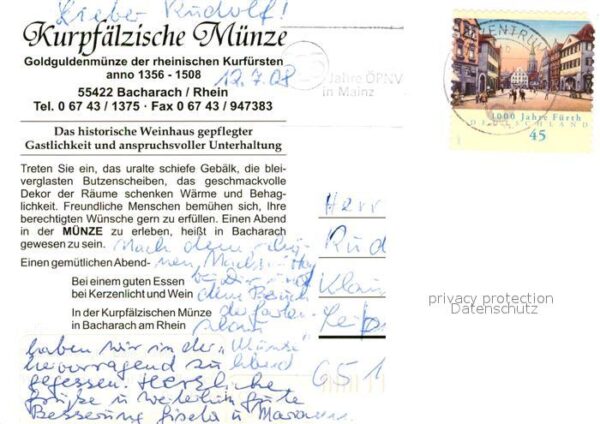 Lieber Rudolf!
Kurpfälzische Münze
Goldguldenmünze der rheinischen Kurfürsten
anno 1356 - 1508
12.7.08
55422 Bacharach / Rhein
Tel. 0 67 43 / 1375 · Fax 0 67 43 / 947383
Das historische Weinhaus gepflegter
Gastlichkeit und anspruchsvoller Unterhaltung
Treten Sie ein, das uralte schiefe Gebälk, die blei-
verglasten Butzenscheiben, das geschmackvolle
Dekor der Räume schenken Wärme und Behag-
lichkeit. Freundliche Menschen bemühen sich, Ihre
berechtigten Wünsche gern zu erfüllen. Einen Abend
in der MÜNZE zu erleben, heißt in Bacharach
gewesen zu sein.
Nach dem
Einen gemütlichen Abend-
bei Dir und
Bei einem guten Essen
bei Kerzenlicht und Wein
dem Besuch
In der Kurpfälzischen Münze
in Bacharach am Rhein
der Garten-
schau
haben wir in der "Münze"
hervorragend zu Abend
gegessen. Herzliche
Grüße u weiterhin gute
Besserung Gisela u
Jahre ÖPNV
in Mainz
ZENTRUM
1000 Jahre Fürth
DEUTSCHLAND
45
Herr
Rud
651
privacy protection
Datenschutz